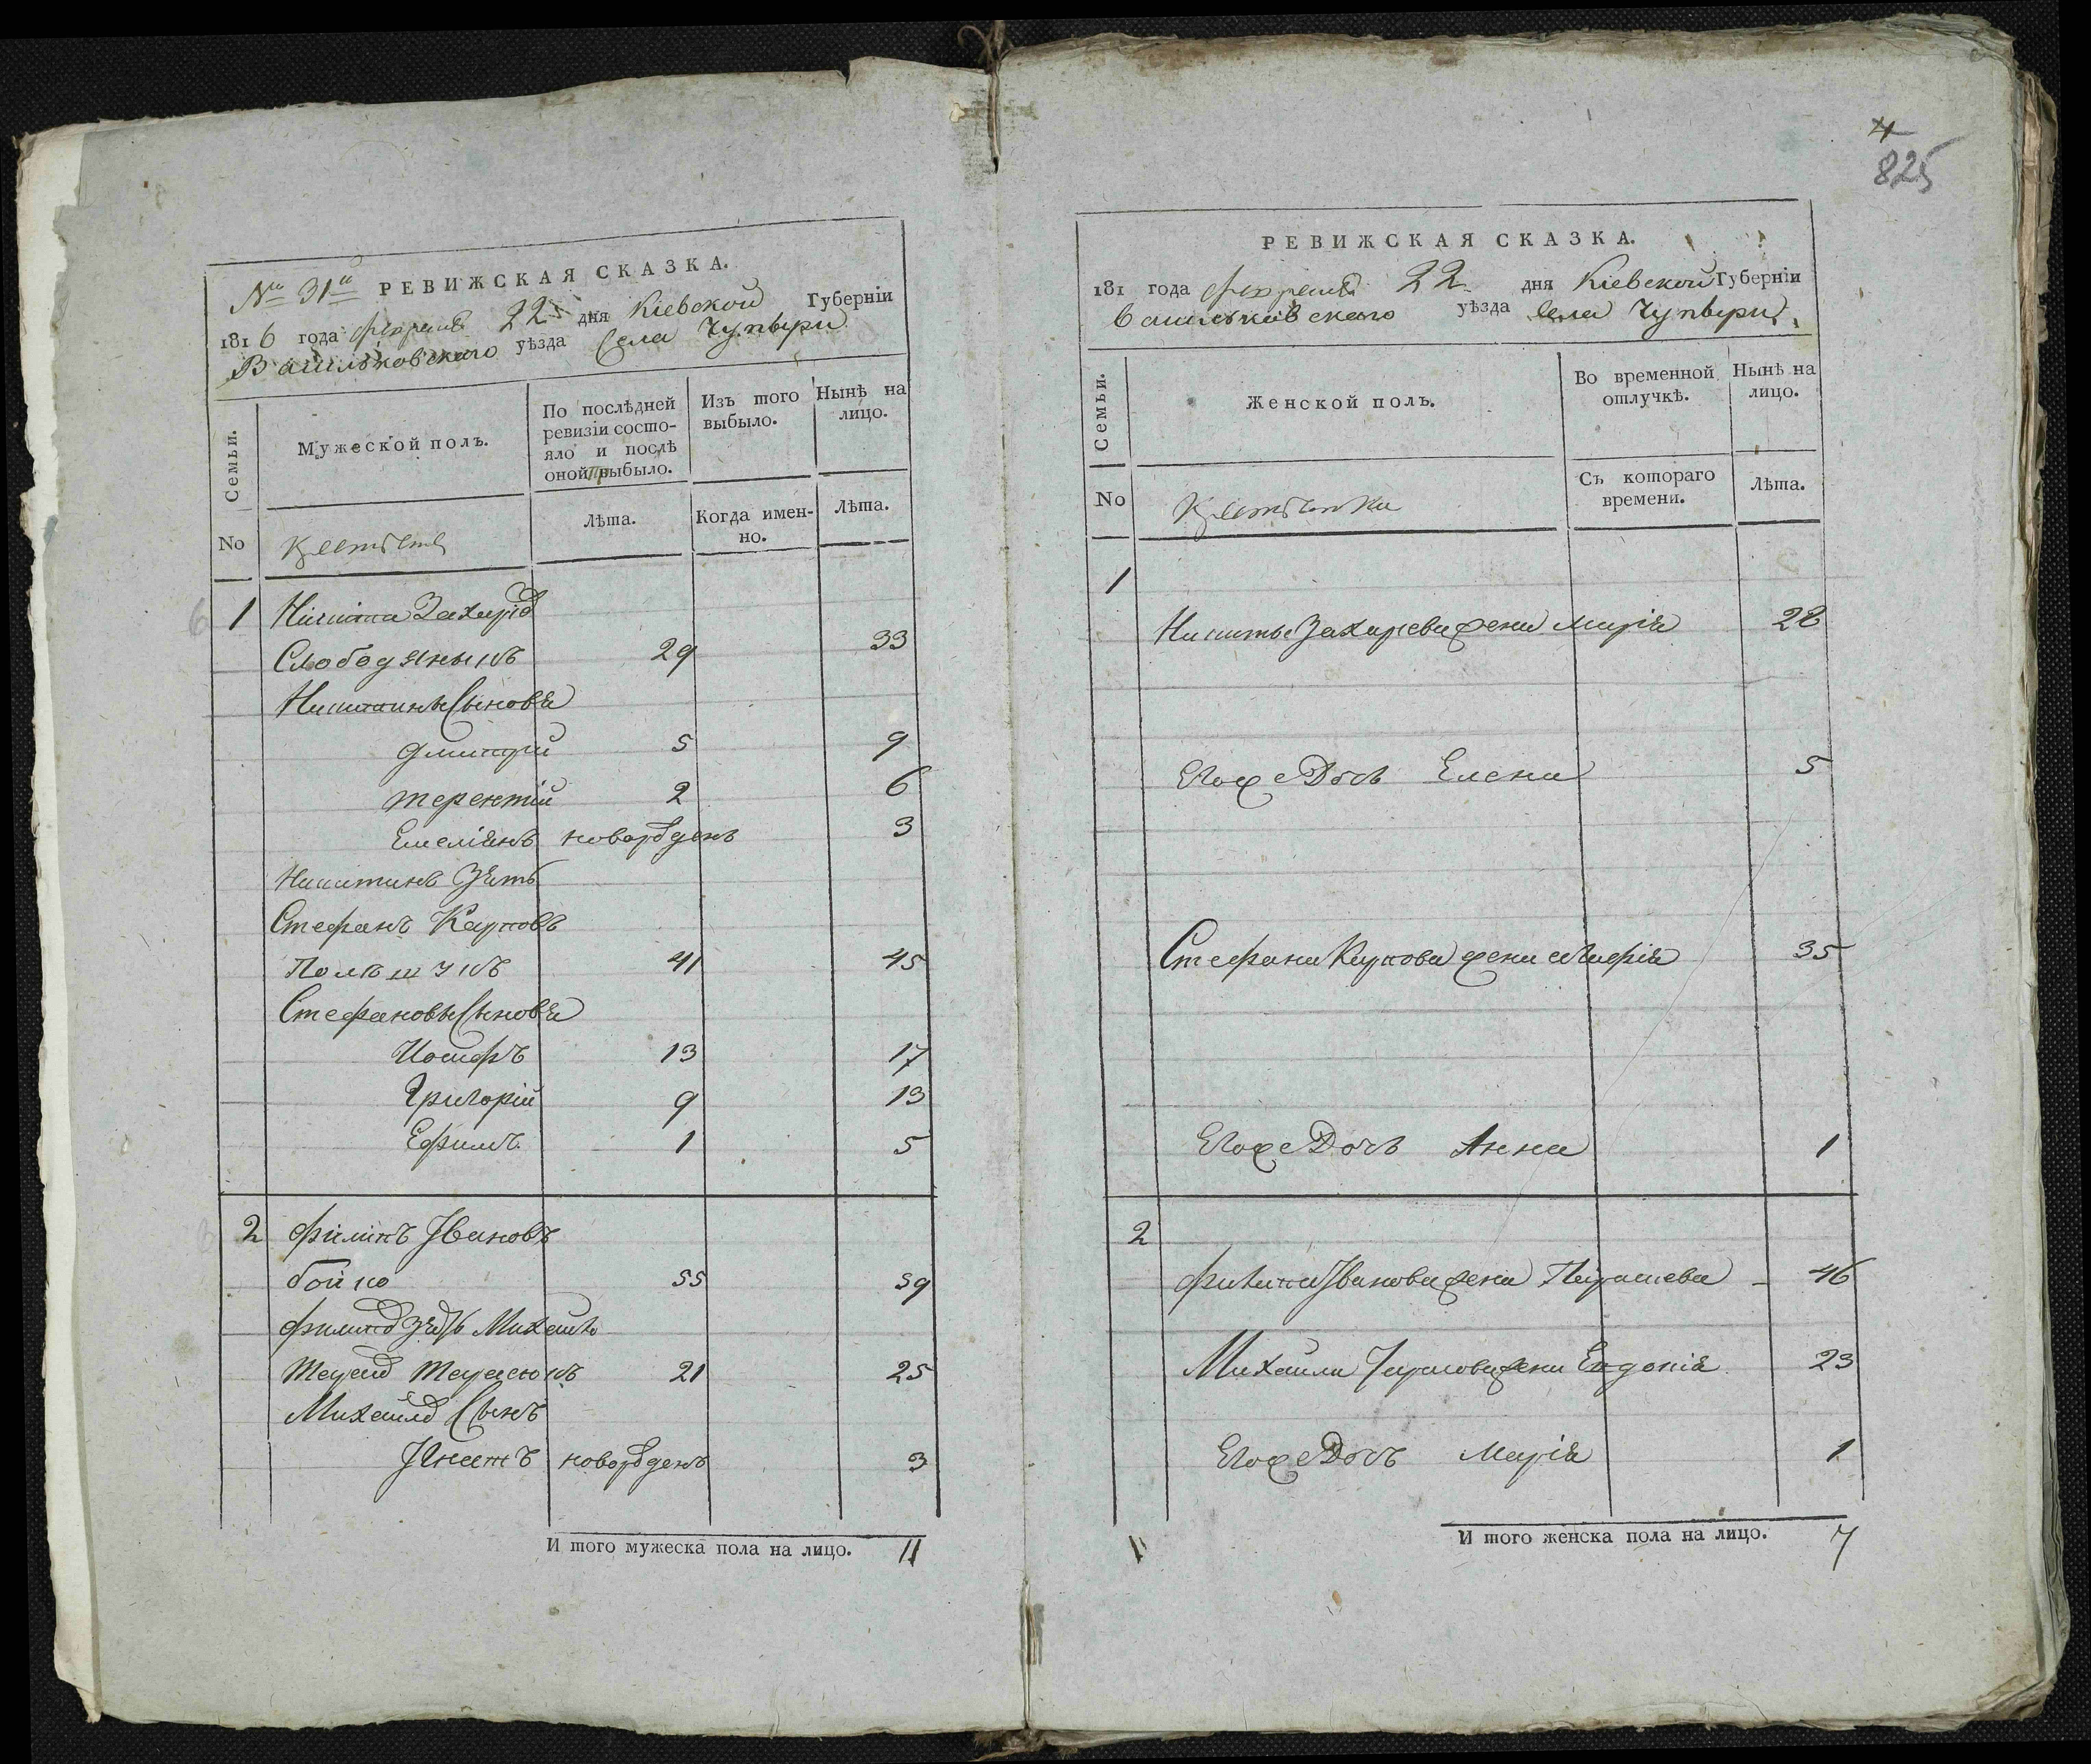 № 31й РЕВИЖСКАЯ СКАЗКА.
1816 года февраля 22 дня Кіевской Губерніи
Васильковскаго уѣзда Села Чупыри
Семьи.
Мужеской полъ.
По послѣдней ревизіи состояло и послѣ оной прибыло.
Изъ того выбыло.
Нынѣ на лицо.
No
Лѣта.
Когда именно.
Лѣта.
1 Никита Захаріевъ
Слободяныкъ 29 33
Никитины Сыновья
Дмитрій 5 9
Терентій 2 6
Емеліянъ новорожденъ 3
Никитинъ Зять
Стефанъ Карповъ
41 45
Стефановы Сыновья
Іосифъ 13 17
Григорій 9 13
Ефимъ 1 5
2 Филипъ Ивановъ
бойко 55 59
Филиповъ Зять Михайло
Тарасовъ Тарасюкъ 21 25
Михайловъ Сынъ
Игнатъ новорожденъ 3
И того мужеска пола на лицо. 11
4
825
РЕВИЖСКАЯ СКАЗКА.
181 года февраля 22 дня Кіевской Губерніи
Васильковскаго уѣзда Села Чупыри
Семьи.
Женской полъ.
Во временной отлучкѣ.
Нынѣ на лицо.
No
Съ котораго времени.
Лѣта.
1
Никиты Захарева жена Марія 28
Егоже Дочь Елена 5
Стефана Карпова жена 35
Егоже Дочь Анна 1
2
Филипа Иванова жена 46
Михайла Тарасова жена Евдокія 23
Егоже Дочь Марія 1
И того женска пола на лицо. 7